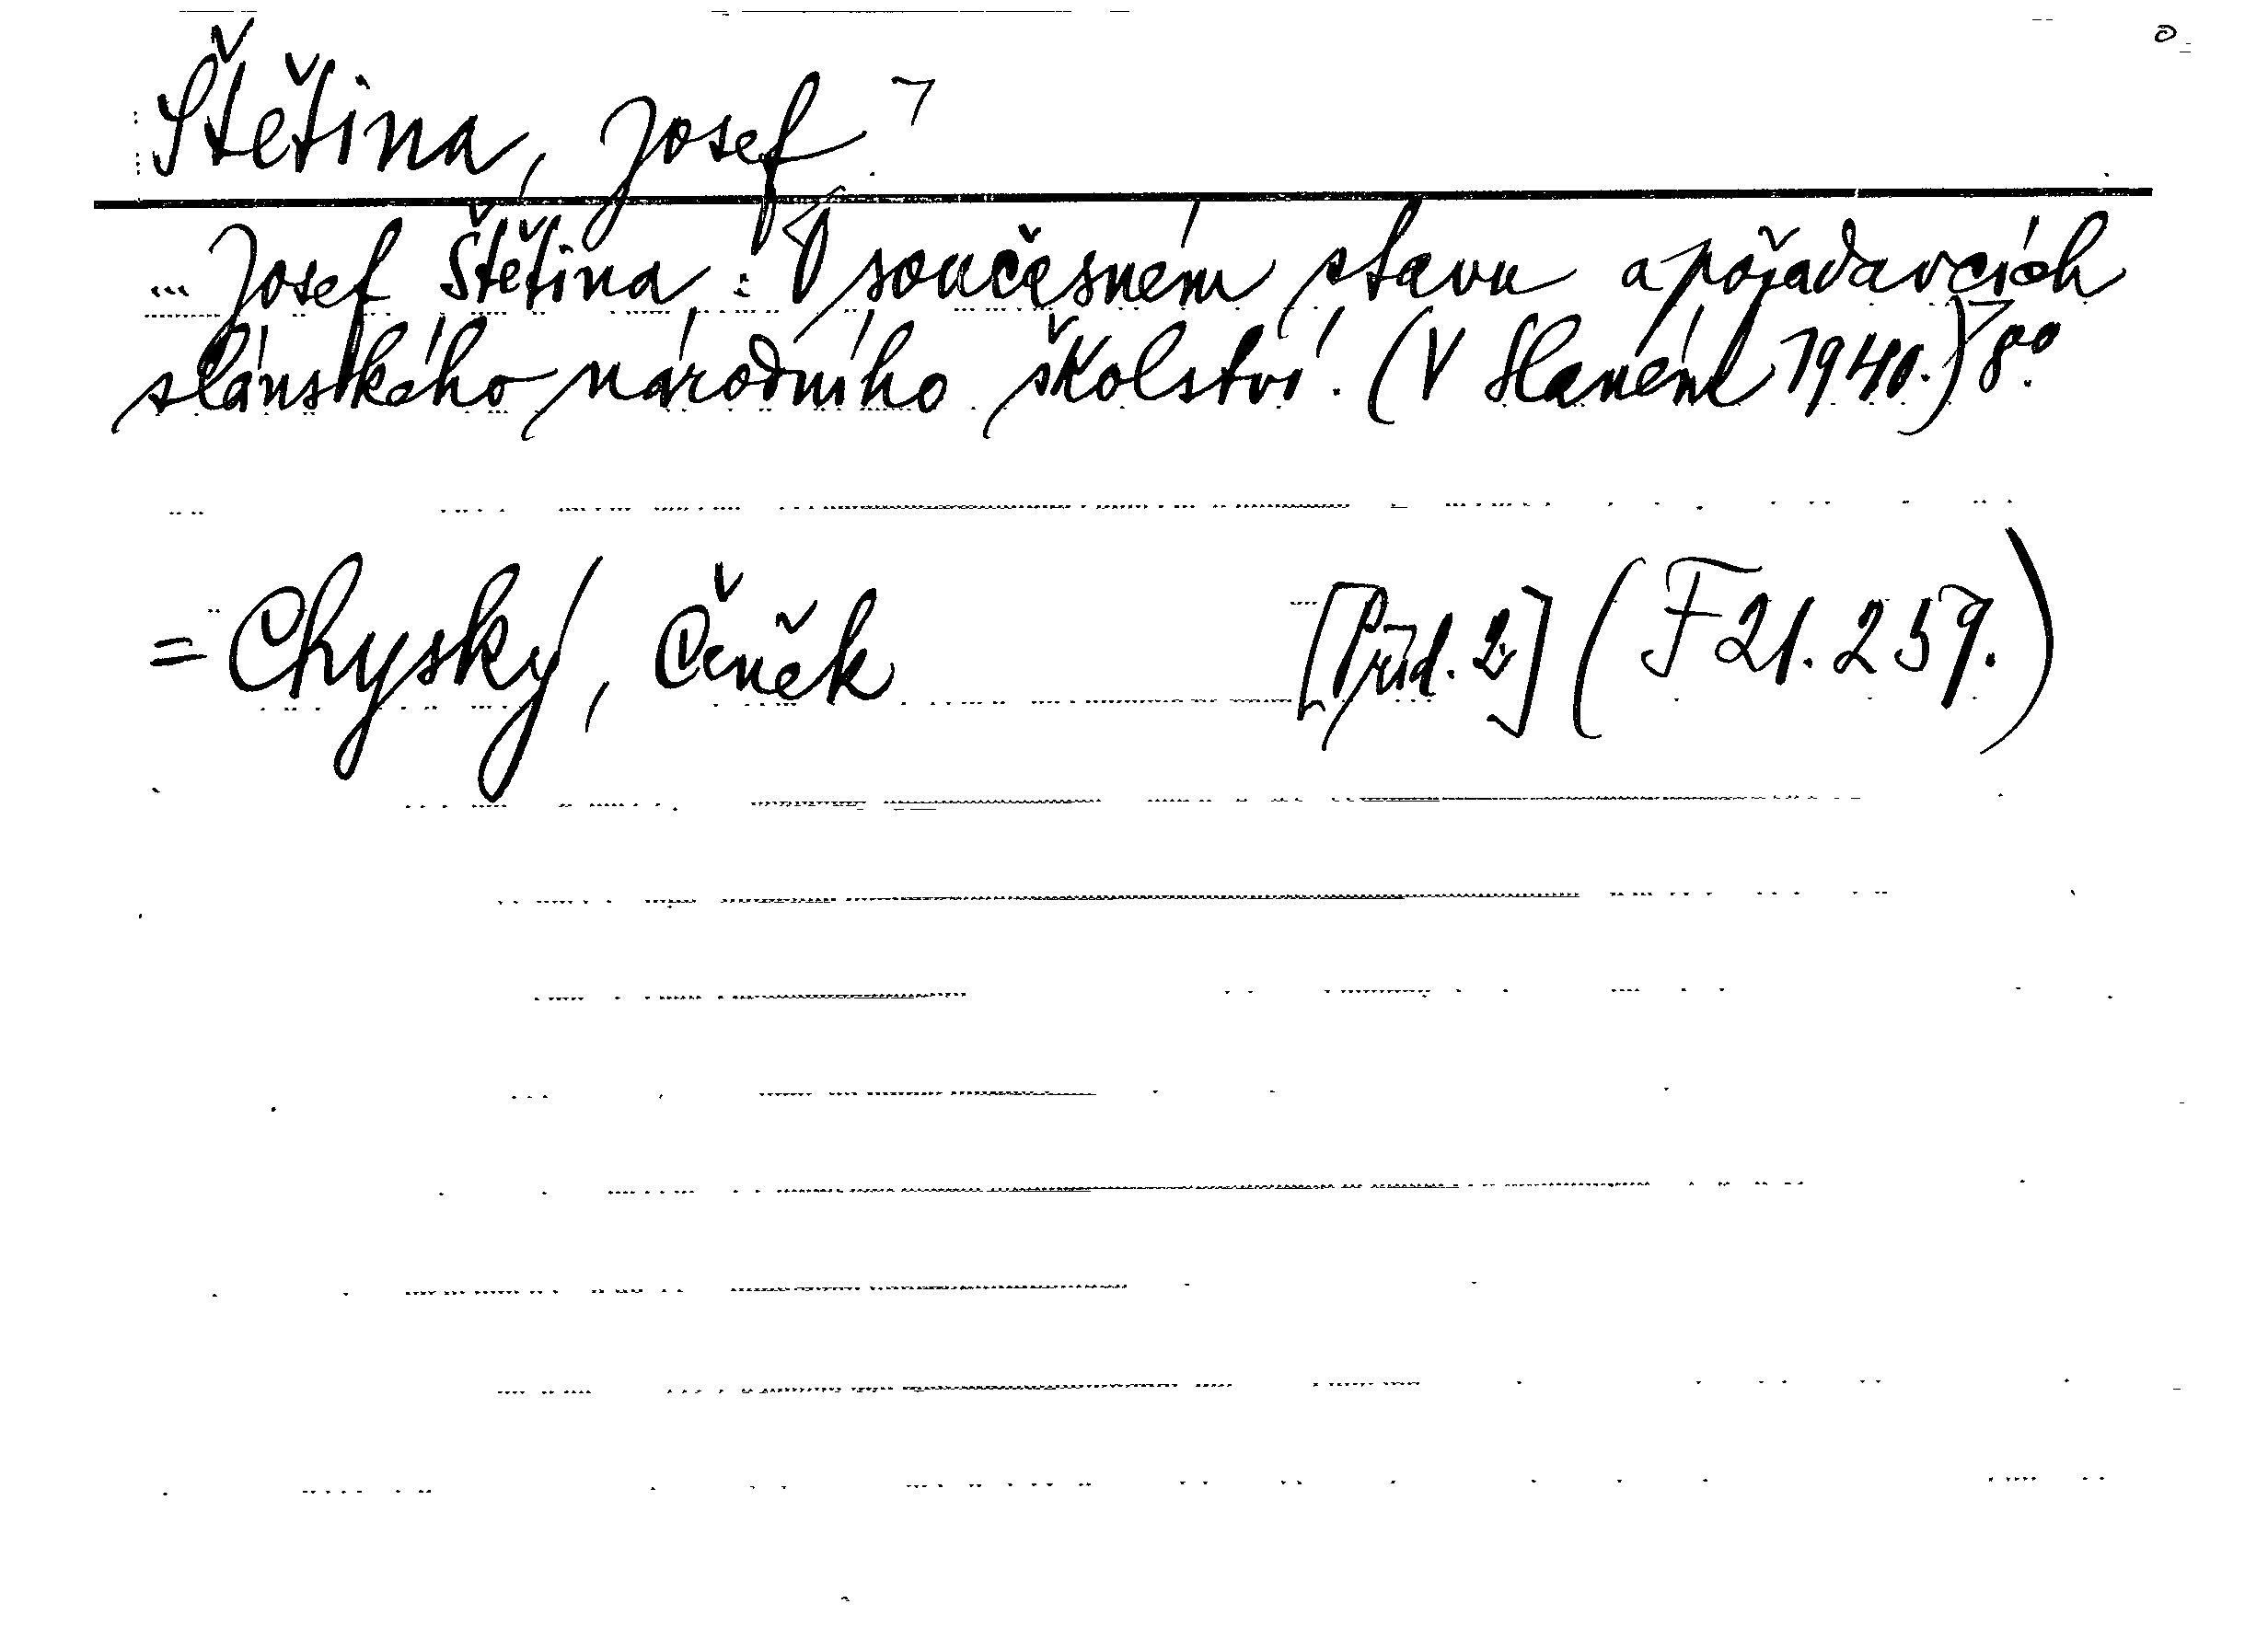 Štětina, Josef
... Josef Štětina: O současném stavu a požadavcích
slánského národního školství. (V Slaném 1940.) 8°.
= Chyský, Čeněk [Příd. 2] (F 21.259.)